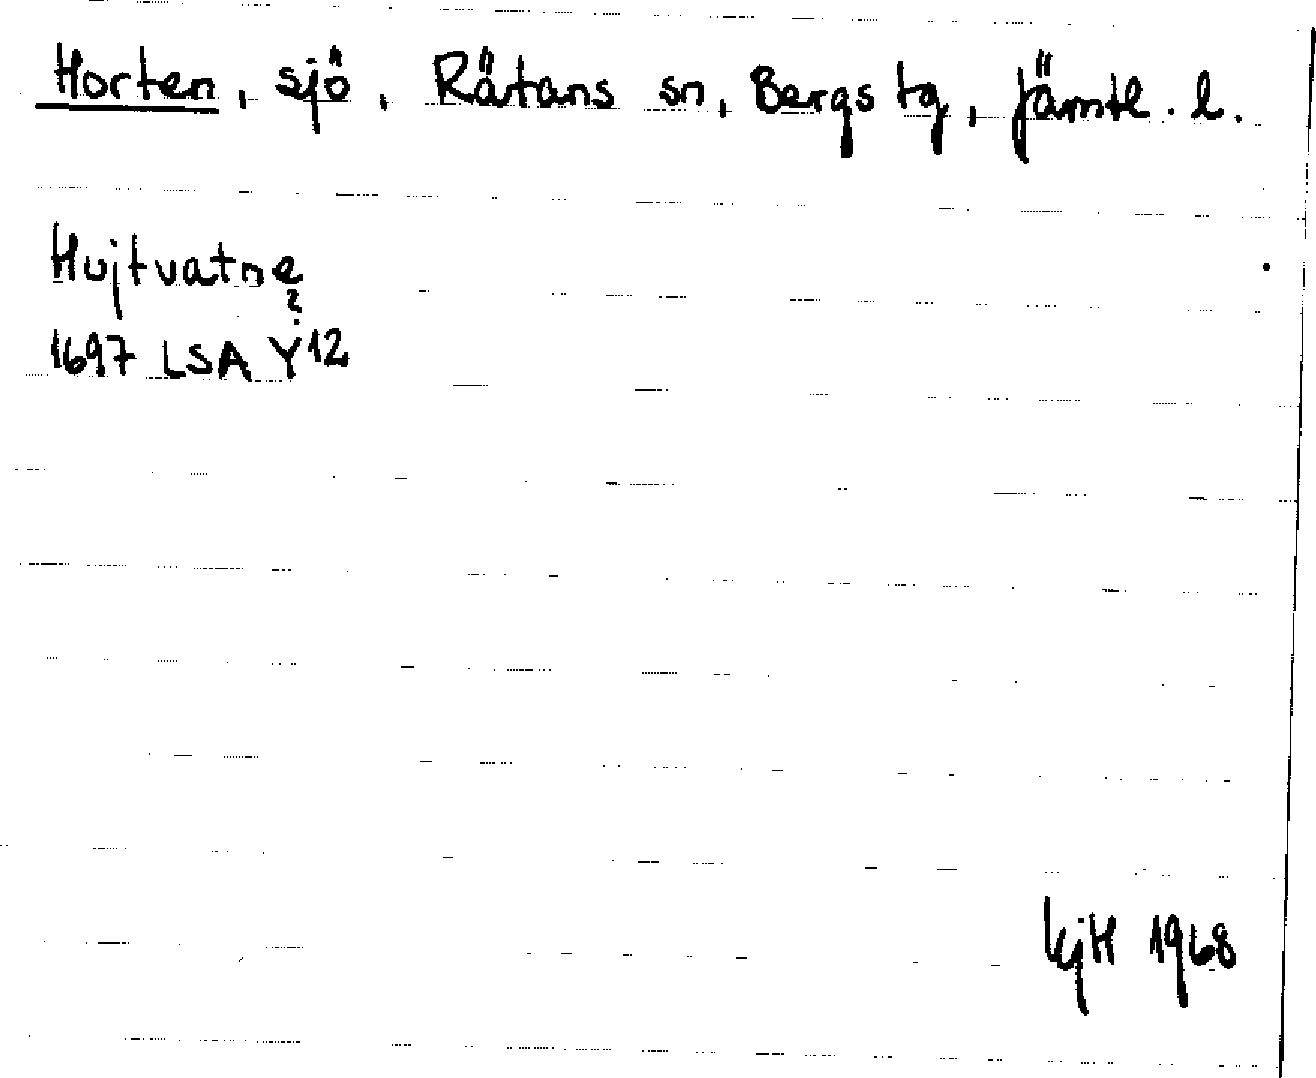 Horten, sjö, Rätans sn, Bergs tg, Jämtl. l.
Hujtvatne
?
1697 LSA Y12
KjH 1968